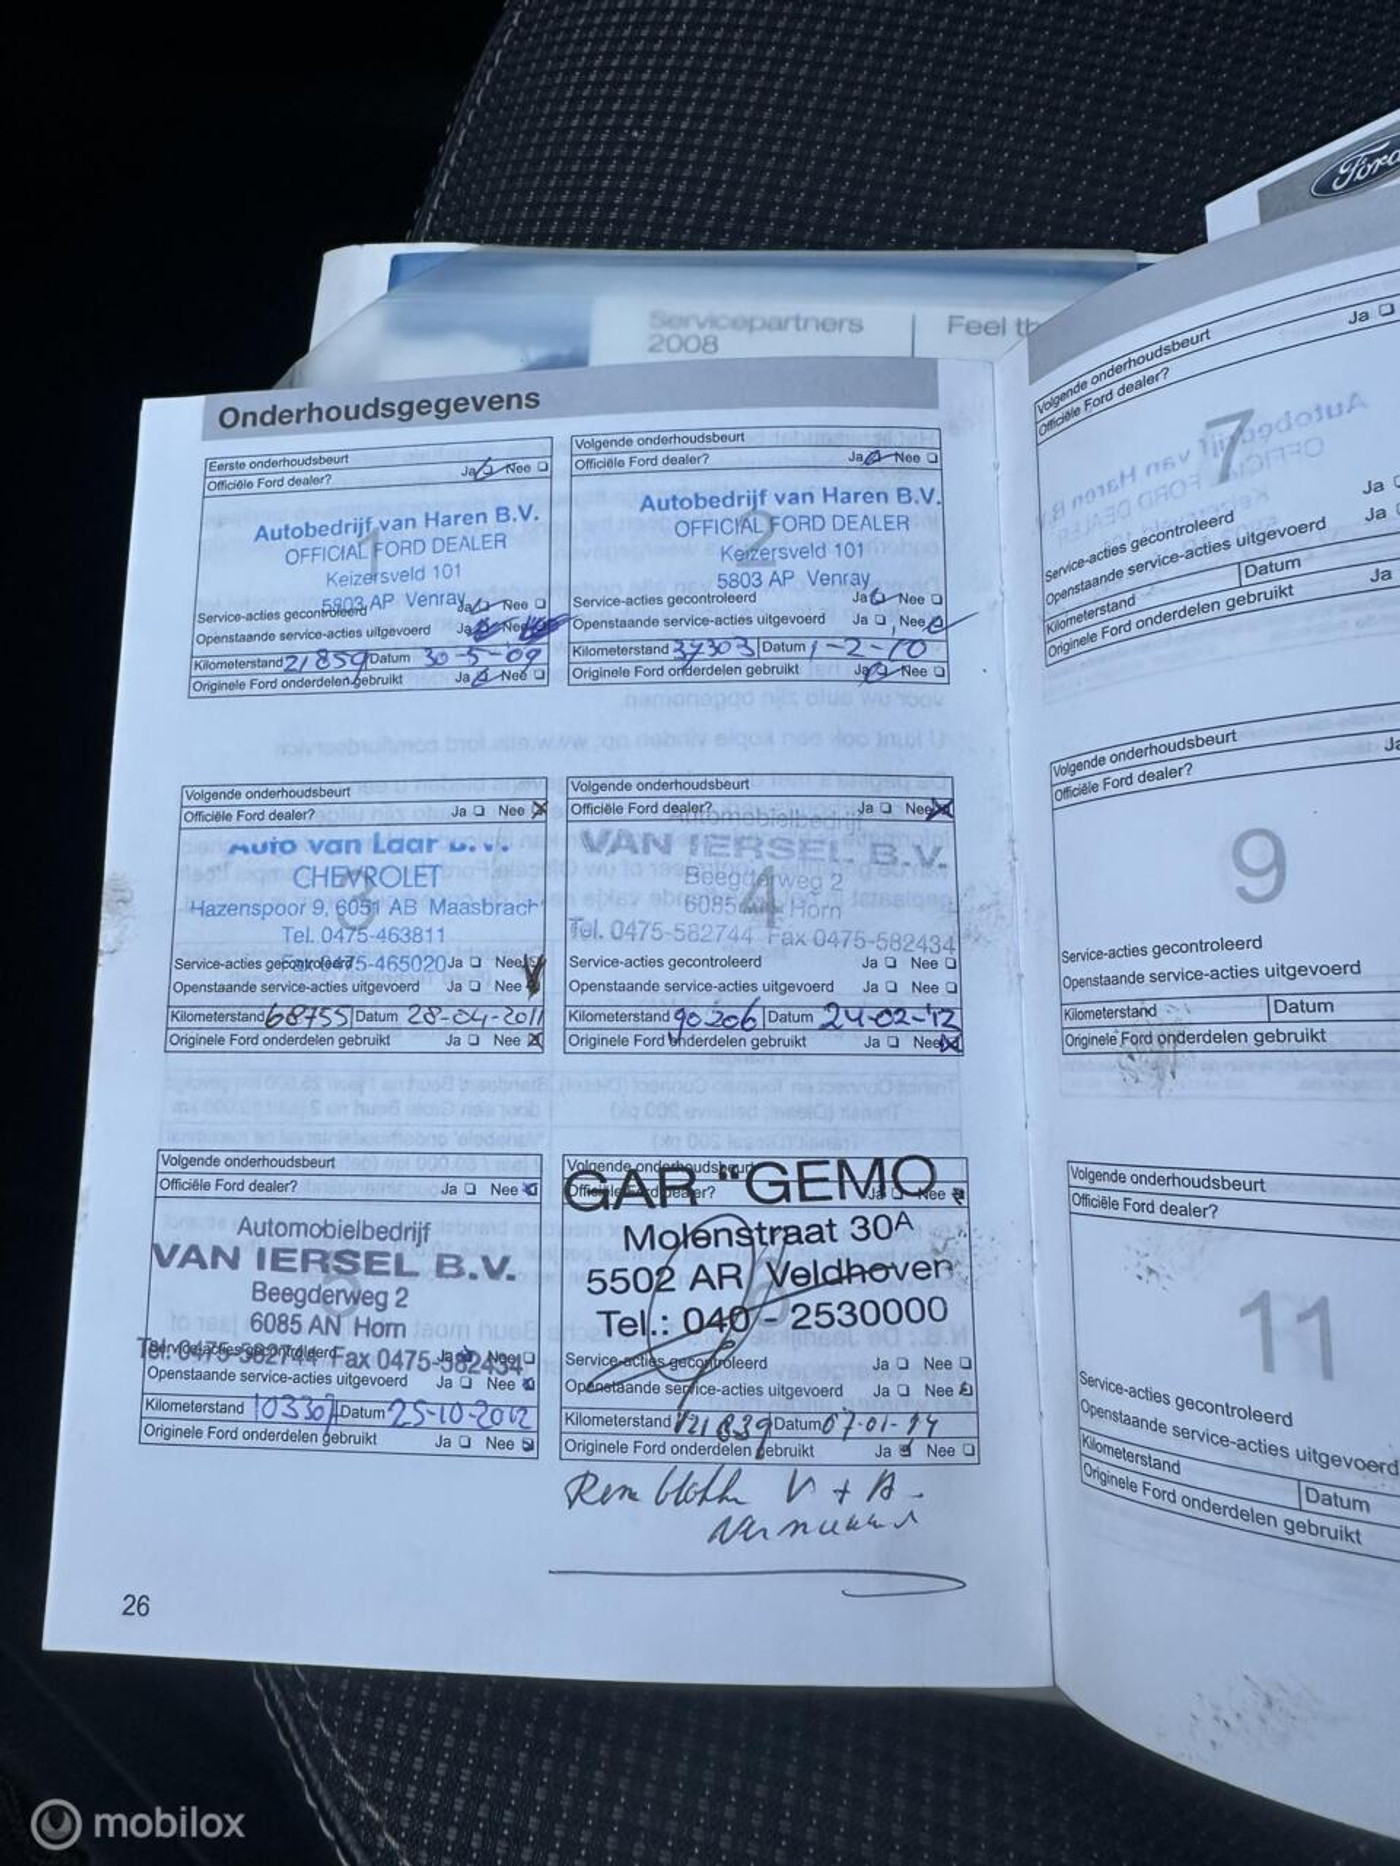 Ford
Servicepartners
2008
Feel th
Onderhoudsgegevens
Eerste onderhoudsbeurt
Officiële Ford dealer? Ja Nee
1
Autobedrijf van Haren B.V.
OFFICIAL FORD DEALER
Keizersveld 101
5803 AP Venray
Service-acties gecontroleerd Ja Nee
Openstaande service-acties uitgevoerd Ja Nee
Kilometerstand 21859 Datum 30-5-09
Originele Ford onderdelen gebruikt Ja Nee
Volgende onderhoudsbeurt
Officiële Ford dealer? Ja Nee
2
Autobedrijf van Haren B.V.
OFFICIAL FORD DEALER
Keizersveld 101
5803 AP Venray
Service-acties gecontroleerd Ja Nee
Openstaande service-acties uitgevoerd Ja Nee
Kilometerstand 37303 Datum 1-2-10
Originele Ford onderdelen gebruikt Ja Nee
Volgende onderhoudsbeurt
Officiële Ford dealer? Ja Nee
3
Auto van Laar b.v.
CHEVROLET
Hazenspoor 9, 6051 AB Maasbracht
Tel. 0475-463811
Fax 0475-465020
Service-acties gecontroleerd Ja Nee
Openstaande service-acties uitgevoerd Ja Nee
Kilometerstand 68755 Datum 28-04-2011
Originele Ford onderdelen gebruikt Ja Nee
Volgende onderhoudsbeurt
Officiële Ford dealer? Ja Nee
4
Automobielbedrijf
VAN IERSEL B.V.
Beegderweg 2
6085 AN Horn
Tel. 0475-582744 Fax 0475-582434
Service-acties gecontroleerd Ja Nee
Openstaande service-acties uitgevoerd Ja Nee
Kilometerstand 90206 Datum 24-02-'12
Originele Ford onderdelen gebruikt Ja Nee
Volgende onderhoudsbeurt
Officiële Ford dealer? Ja Nee
5
Automobielbedrijf
VAN IERSEL B.V.
Beegderweg 2
6085 AN Horn
Tel. 0475-582744 Fax 0475-582434
Service-acties gecontroleerd Ja Nee
Openstaande service-acties uitgevoerd Ja Nee
Kilometerstand 103307 Datum 25-10-2012
Originele Ford onderdelen gebruikt Ja Nee
Volgende onderhoudsbeurt
Officiële Ford dealer? Ja Nee
6
GAR "GEMO
Molenstraat 30A
5502 AR Veldhoven
Tel.: 040 - 2530000
Service-acties gecontroleerd Ja Nee
Openstaande service-acties uitgevoerd Ja Nee
Kilometerstand 121839 Datum 07-01-14
Originele Ford onderdelen gebruikt Ja Nee
V + A
26
Volgende onderhoudsbeurt
Officiële Ford dealer? Ja
7
Service-acties gecontroleerd Ja
Openstaande service-acties uitgevoerd Ja
Kilometerstand Datum
Originele Ford onderdelen gebruikt Ja
Volgende onderhoudsbeurt
Officiële Ford dealer? Ja
9
Service-acties gecontroleerd
Openstaande service-acties uitgevoerd
Kilometerstand Datum
Originele Ford onderdelen gebruikt
Volgende onderhoudsbeurt
Officiële Ford dealer?
11
Service-acties gecontroleerd
Openstaande service-acties uitgevoerd
Kilometerstand Datum
Originele Ford onderdelen gebruikt
mobilox